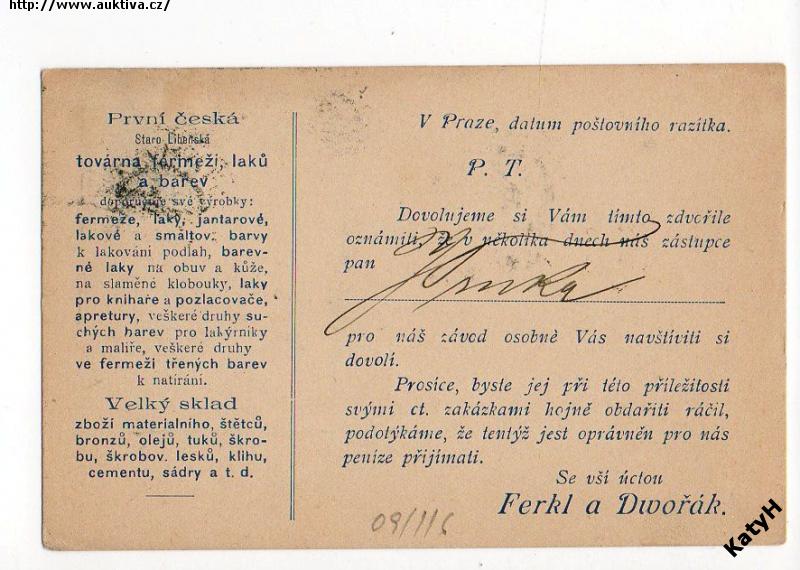 http://www.auktiva.cz/
První česká
Staro Libeňská
továrna fermeží, laků
a barev
doporučuje své výrobky:
fermeže, laky, jantarové,
lakové a smaltov. barvy
k lakování podlah, barev-
né laky na obuv a kůže,
na slaměné klobouky, laky
pro knihaře a pozlacovače,
apretury, veškeré druhy su-
chých barev pro lakýrníky
a malíře, veškeré druhy
ve fermeži třených barev
k natírání.
Velký sklad
zboží materialního, štětců,
bronzů, olejů, tuků, škro-
bu, škrobov. lesků, klihu,
cementu, sádry a t. d.
V Praze, datum poštovního razítka.
P. T.
Dovolujeme si Vám tímto zdvořile
oznámiti, že v několika dnech náš zástupce
pan
pro náš závod osobně Vás navštíviti si
dovolí.
Prosíce, byste jej při této příležitosti
svými ct. zakázkami hojně obdařiti ráčil,
podotýkáme, že tentýž jest oprávněn pro nás
peníze přijímati.
Se vší úctou
Ferkl a Dwořák.
09/116
KatyH